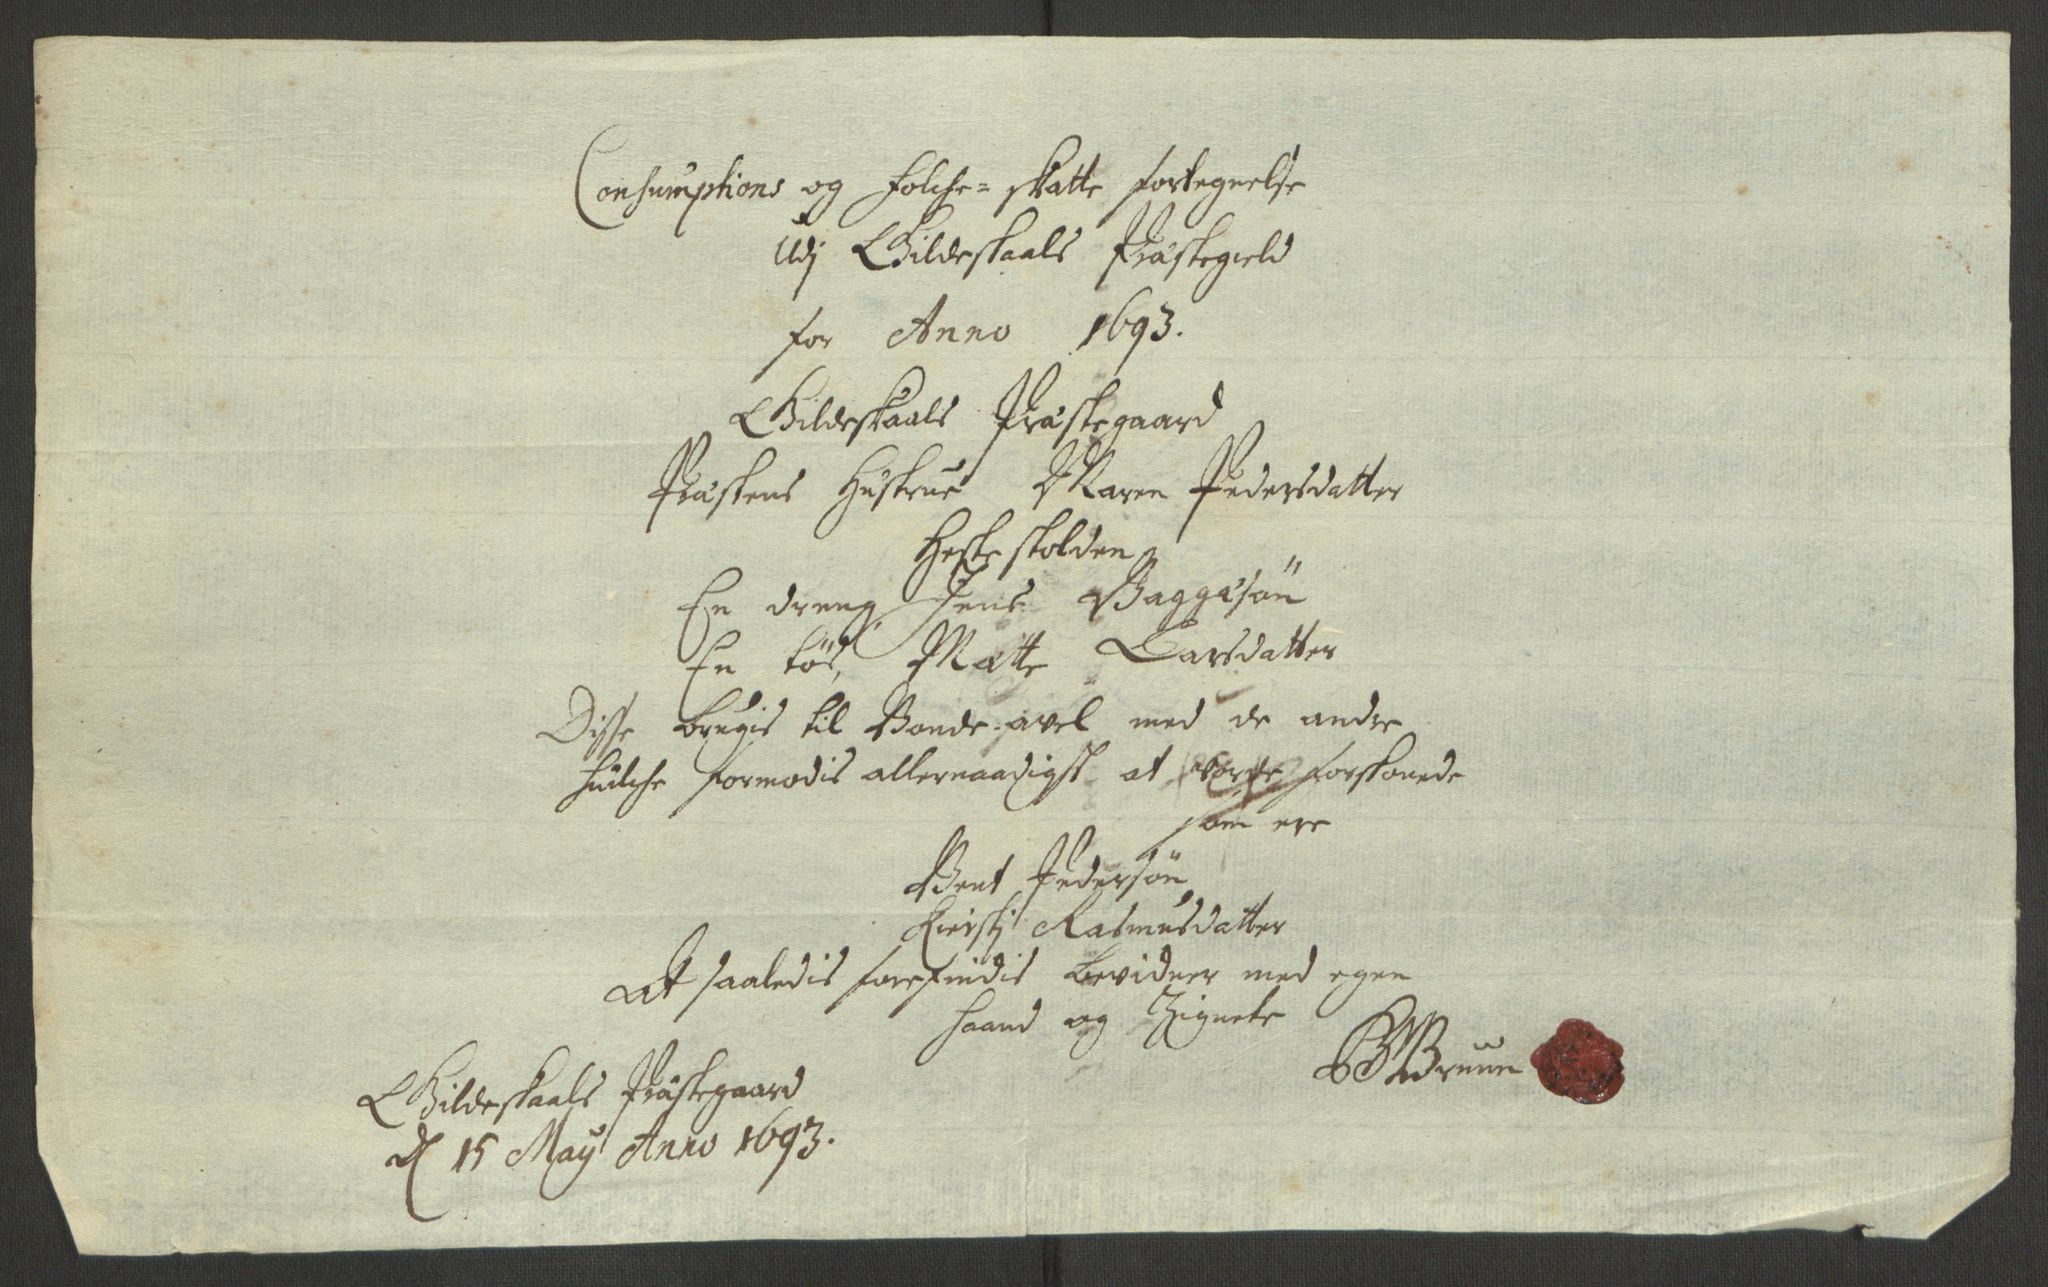 Consumptions og folche= skatte fortegnelse
Udj Gildeskaals Præstegield
for Anno 1693.
Gildeskaals Præstegaard
Præstens Hustrue Maren Pedersdatter
Heste skolden
En dreng, Jens Baggesøn
En tøs, Mætte Larsdatter
Disse brugis til Bonde-avel med de andre
huilche formodis allernaadigst at vorde forskonede
som ere
Bent Pedersøn
Kiersti Rasmusdatter
At saaledis forefindis bevidner med egen
haand og Zignete
Bruun
Gildeskaals Præstegaard
d 15 May Anno 1693.